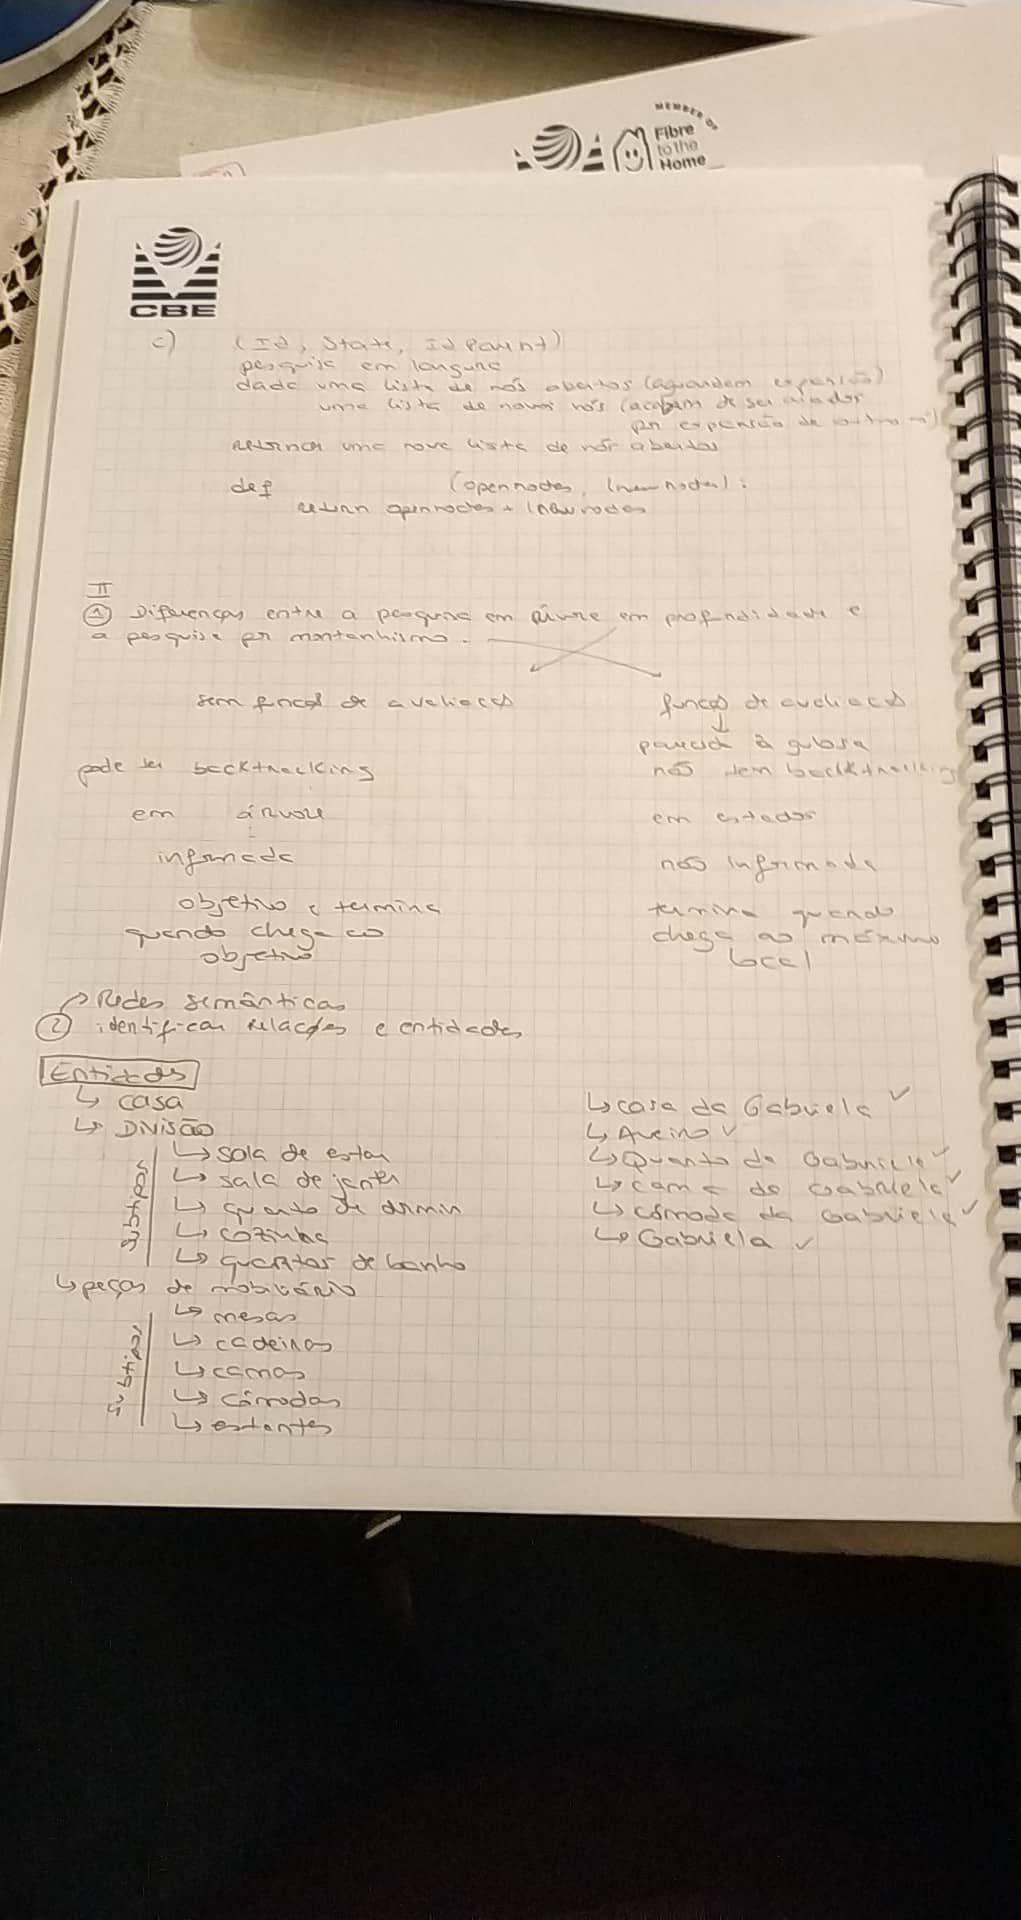 MEMBER OF
Fibre
to the
Home
CBE
c) (Id, State, Id Parent)
pesquisa em largura
dada uma lista de nós abertos (aguardam expansão)
uma lista de novos nós (acabam de ser criados
por expansão de outro nó)
retornar uma nova lista de nós abertos
def (opennodes, lnewnodes):
return opennodes + lnewnodes
II
① Diferenças entre a pesquisa em árvore em profundidade e
a pesquisa por montanhismo.
sem função de avaliação
função de avaliação
parecida à gulosa
pode ter backtracking
não tem backtracking
em árvore
em estados
informada
não informada
objetivo e termina
quando chega ao
objetivo
termina quando
chega ao máximo
local
Redes semânticas
② identificar relações e entidades
Entidades
↳ casa
↳ DIVISÃO
subtipos
↳ sala de estar
↳ sala de jantar
↳ quarto de dormir
↳ cozinha
↳ quartos de banho
↳ peças de mobiliário
subtipos
↳ mesas
↳ cadeiras
↳ camas
↳ cómodas
↳ estantes
↳ casa da Gabriela ✓
↳ Aveiro ✓
↳ Quarto da Gabriela ✓
↳ cama da Gabriela ✓
↳ cómoda da Gabriela ✓
↳ Gabriela ✓